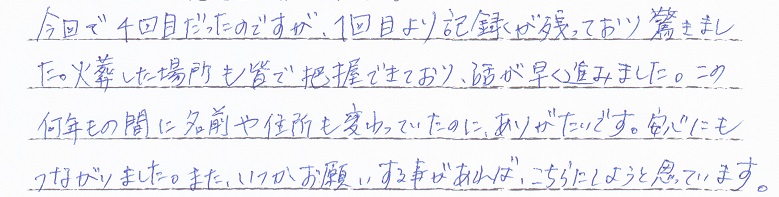 今回で4回目だったのですが、1回目より記録が残っており驚きまし
た。火葬した場所も皆で把握できており、話が早く進みました。この
何年もの間に名前や住所も変わっていたのに、ありがたいです。安心にも
つながりました。また、いつかお願いする事があれば、こちらにしようと思っています。